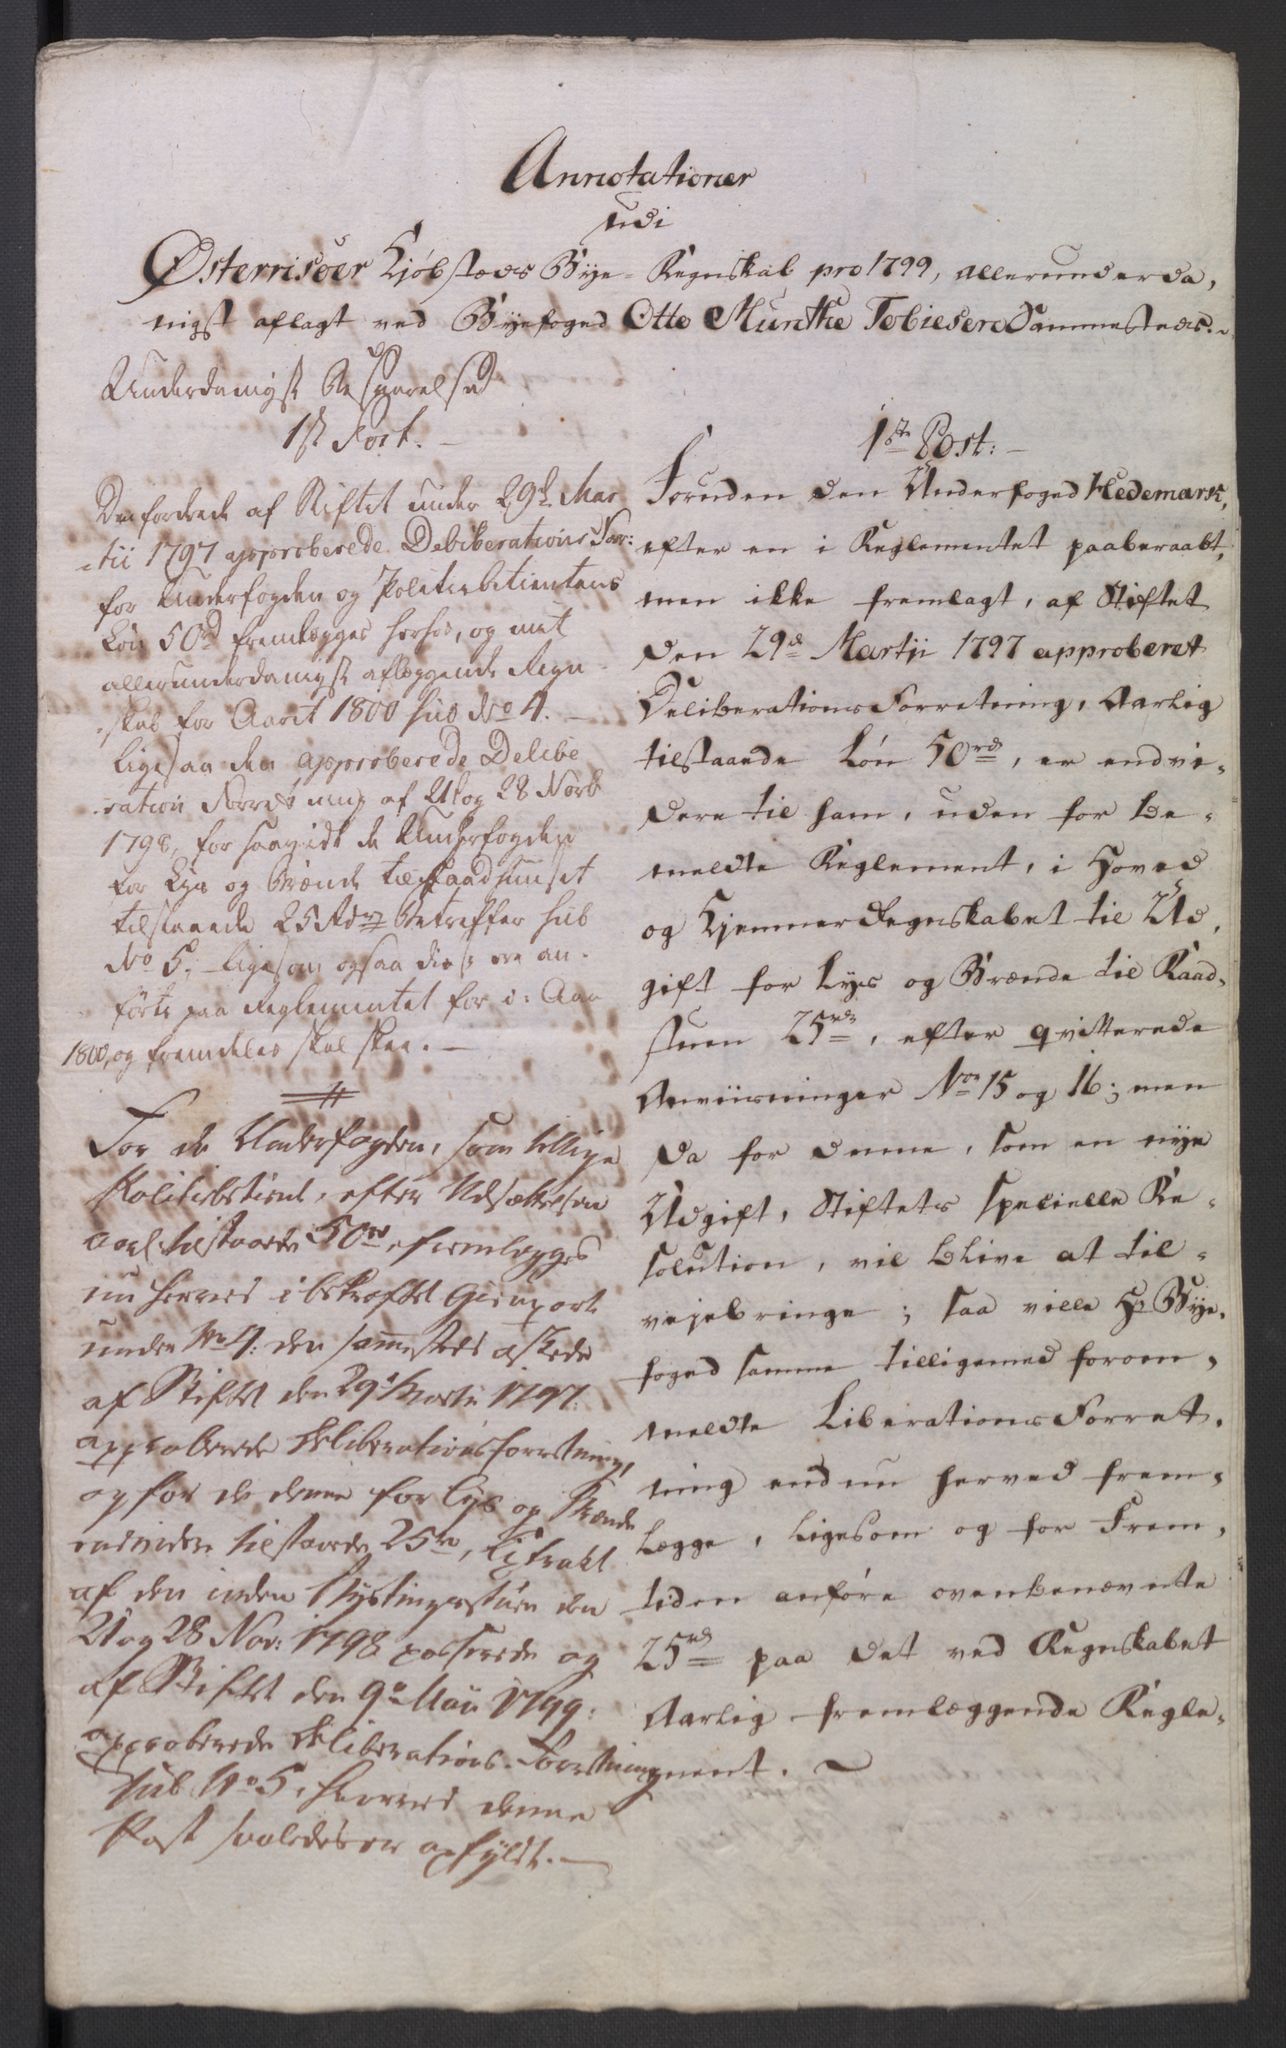 Annotationer
udi
Østerrisöer Kjöbstæds Bÿe-Regnskab pro 1799, allerunderda,
nigst aflagt ved Bÿefoged Otto Munthe Tobiesen Sammesteds.
Underdanigst Besvarelse
1st Post.
Den fordrede af Stiftet under 29d Mar
tii 1797 approberede Deliberations For:
for Underfogden og Politiebetientens
Løn 50rd fremlægges herhos, og med
allerunderdanigst aflæggende Regn
skab for Aaret 1800 sub No 4.
Ligesaa den approberede Delibe
ration Forretning af 21 og 28 Novb
1798, for saavidt de Underfogden
for Lys og Brænde til Raadstuen
tilstaaede 25 Rdr betreffer sub
No 5, ligesom ogsaa disse ere an-
förte paa Reglementet for i: Aar
1800, og fremdeles skal skee.
For de Underfogden, som tillige
Politiebetient, efter Udsættelsen
aarl. tilstaaede 50rd, fremlægges
nu herved i bekræftet Gienpart
under No 4: den sammesteds
af Stiftet den 29d Martii 1797:
approberede Deliberationsforretning,
og for de denne for Lys og Brænde
endvidere tilstaaede 25rd, Extrakt
af den inden Bystingsstuen den
21 og 28 Nov: 1798 passerede og
af Stiftet den 9de Maii 1799:
approberede Deliberations-Forretning
sub No 5, hvorved denne
Post saaledes er opfyldt.
1ste Post:
Foruden den Underfoged Hedemark,
efter en i Reglementet paaberaabt,
men ikke fremlagt, af Stiftet
den 29de Martji 1797 approberet
Deliberations Forretning, Aarlig
tilstaaede Løn 50rd, er endvi-
dere til ham, uden for be-
meldte Reglement, i Hoved
og Hjemmer Regnskabet til Ud,
gift for Lÿs og Brænde til Raad-
stuen 25rdr, efter qvitterede
Anviisninger Nos 15 og 16; men
da for denne, som en nÿe
Udgift, Stiftets specielle Re-
solution, vil blive at til-
vejebringe; saa ville Hr Bÿe-
foged samme tilligemed forom,
meldte Liberations Forret-
ning endnu herved frem-
lægge, ligesom og for Frem,
tiden anføre ovenbenævnte
25rd paa det ved Regnskabet
Aarlig fremlæggende Regle-
ment.